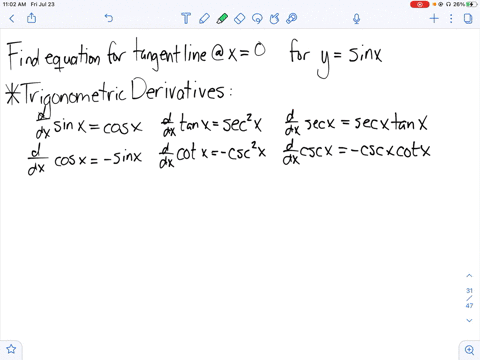 11:02 AM Fri Jul 23
26%
Find equation for tangent line @ x = 0 for y = sinx
*Trigonometric Derivatives:
d/dx sinx = cosx d/dx tanx = sec²x d/dx secx = secx tanx
d/dx cosx = -sinx d/dx cotx = -csc²x d/dx cscx = -cscx cotx
31
/
47